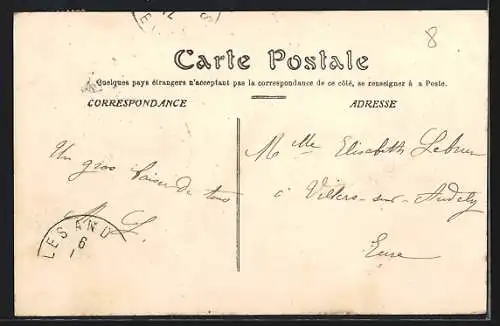 8
Carte Postale
Quelques pays étrangers n'acceptant pas la correspondance de ce côté, se renseigner à a Poste.
CORRESPONDANCE
ADRESSE
Un gros baiser de tous
M Mlle Elisabeth Lebrun
à Villers-sur-Andely
Eure
LES AND
6